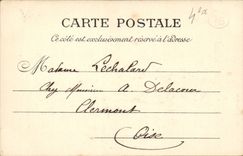 CARTE POSTALE
Ce côté est exclusivement réservé à l'adresse
Madame Lechalard
Chez Monsieur A Delacour
Clermont
Oise